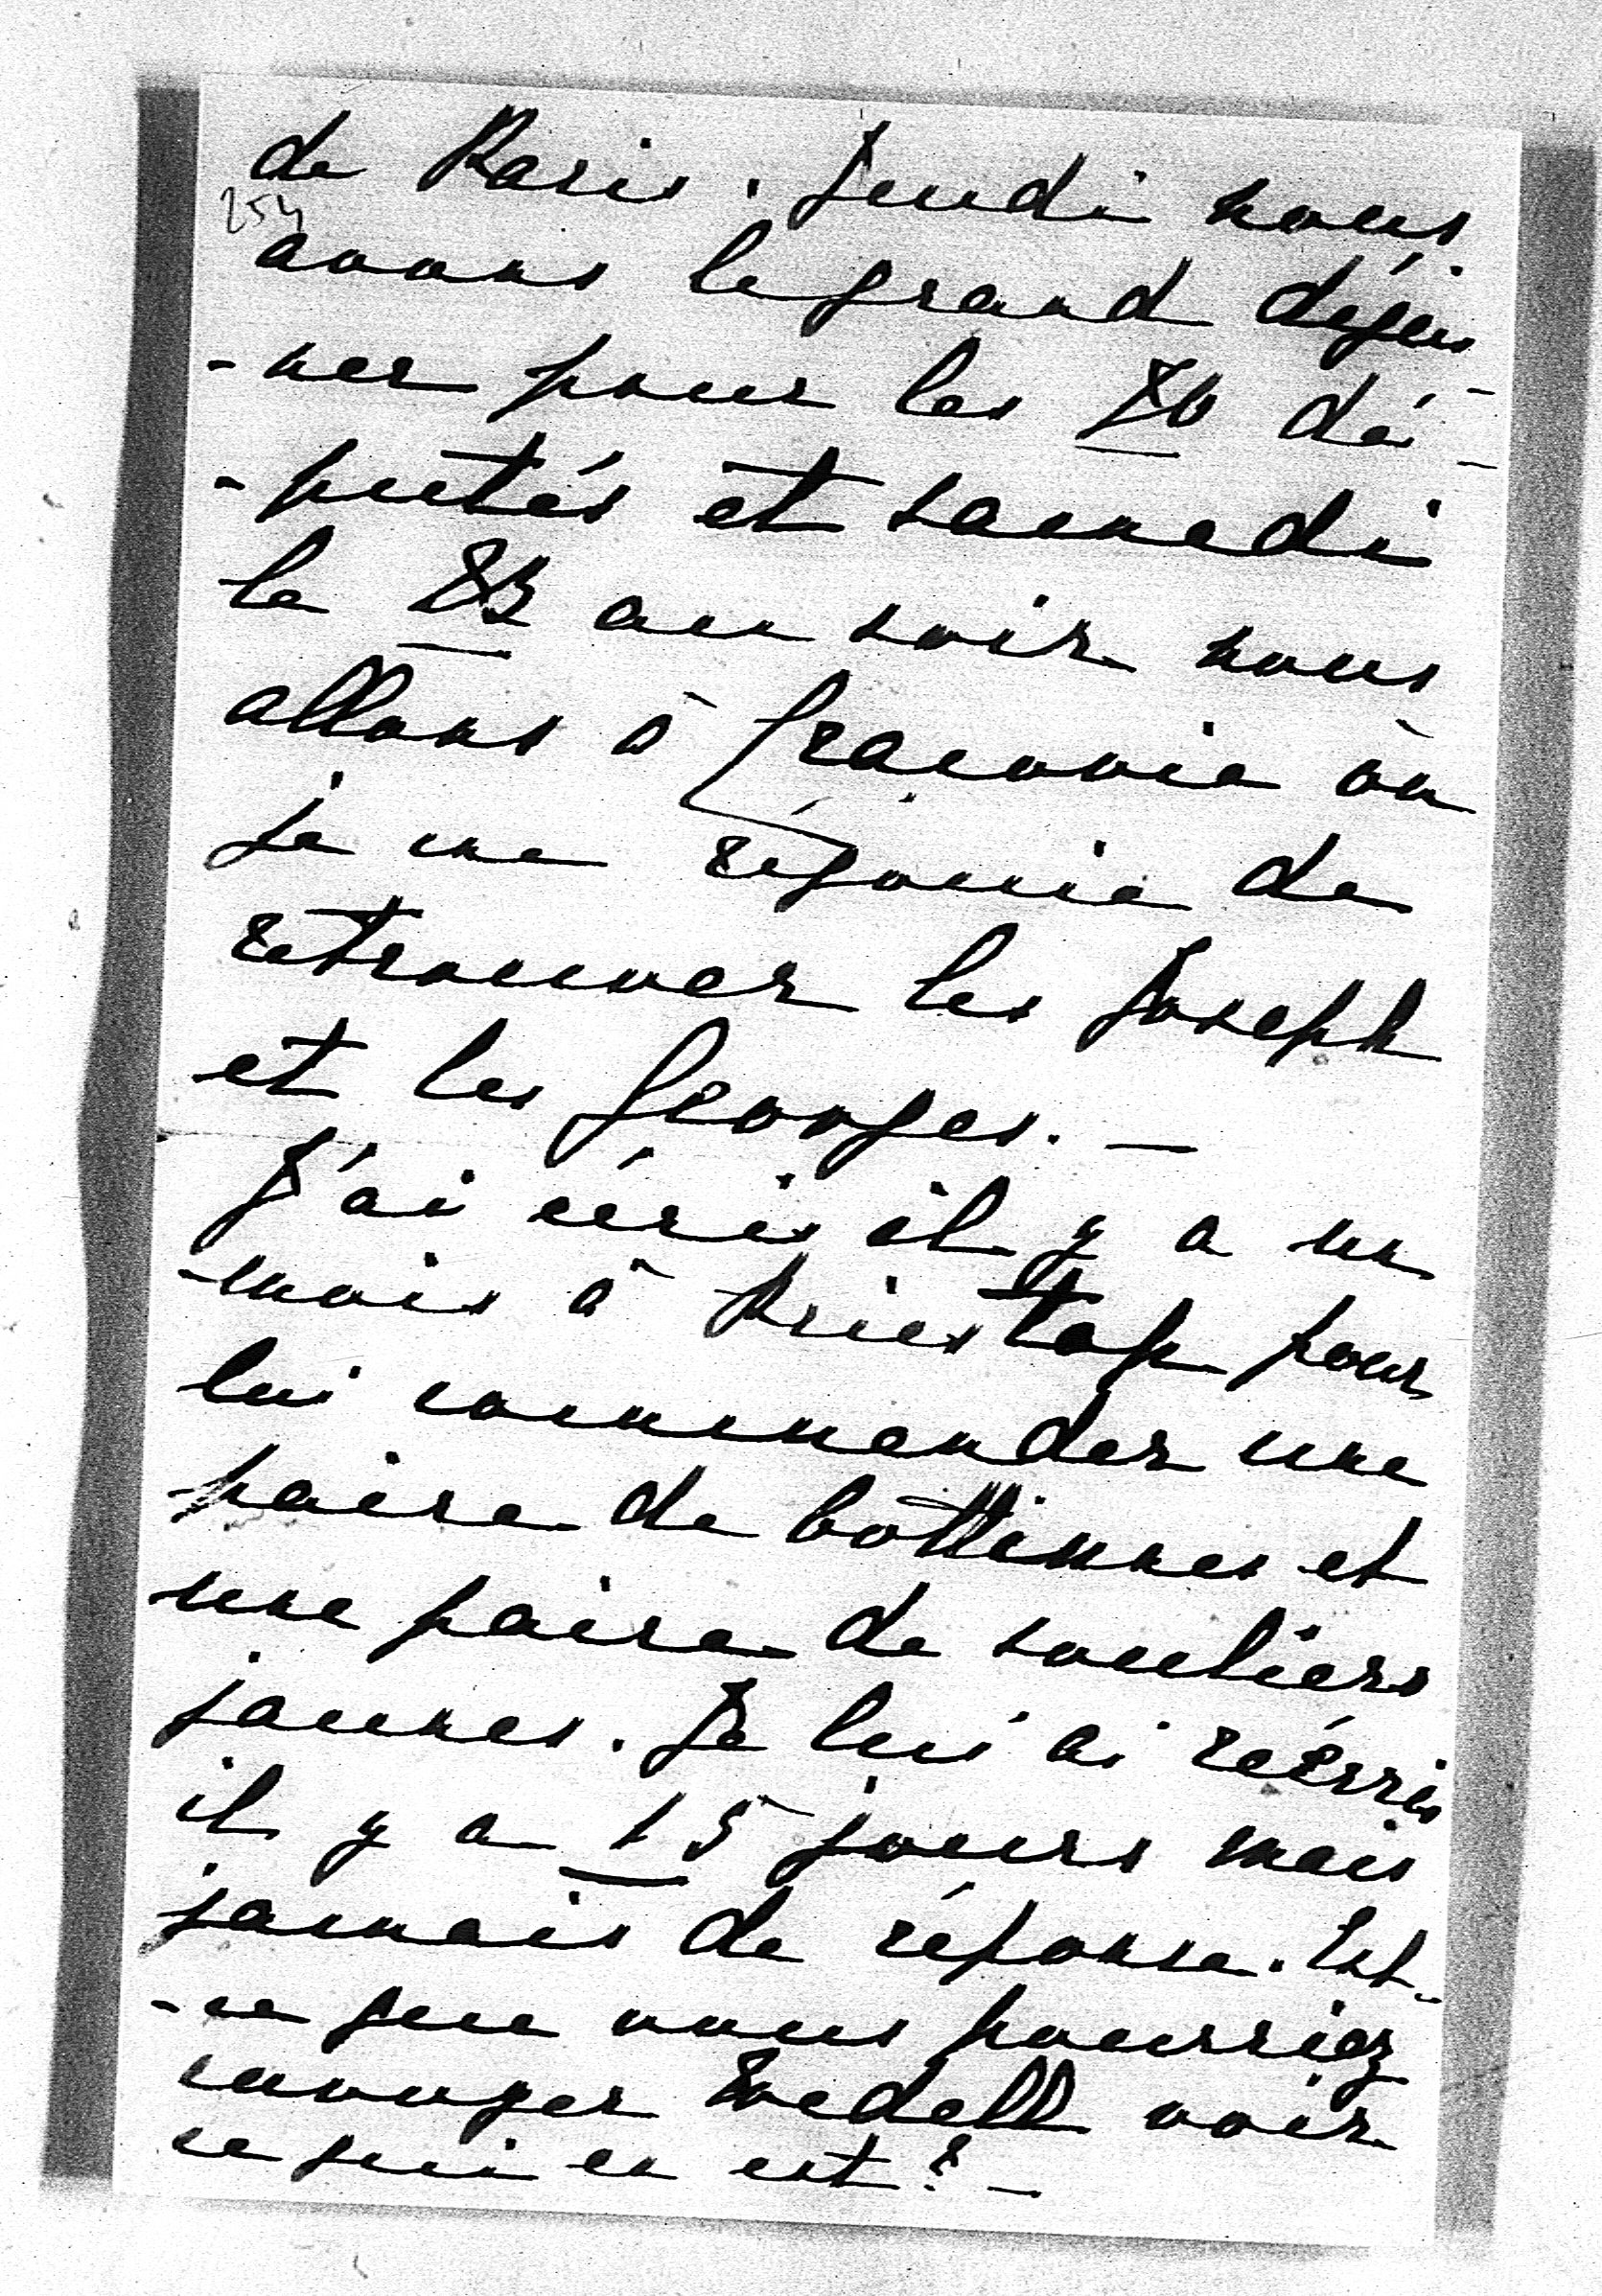 de Paris. Jeudi nous
254
avons le grand déjeu
-ner pour les 80 dé-
-putés et samedi
le 23 au soir nous
allons à Cracovie où
je me réjouie de
retrouver les Joseph
et les Georges. —
J'ai écris il y a un
mois à Kriestap pour
lui commander une
paire de bottinnes et
une paire de souliers
jaunes. Je lui ai réécris
il y a 15 jours mais
jamais de réponse. Est-
-ce que vous pourriez
envoyer Wedell voir
ce qui en est? —